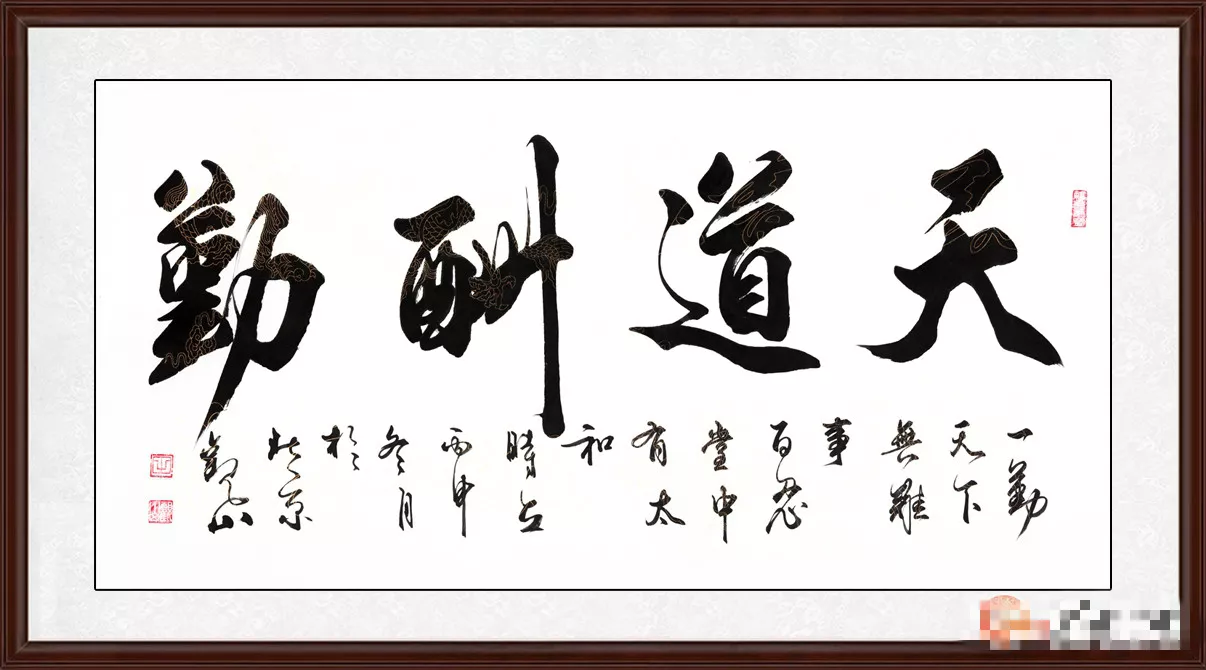 天道酬勤
一勤
天下
無難
事
百忍
堂中
有太
和
時在
丙申
冬月
於
北京
觀山